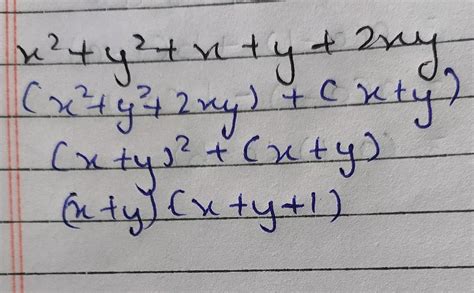 x² + y² + x + y + 2xy
(x² + y² + 2xy) + (x + y)
(x + y)² + (x + y)
(x + y) (x + y + 1)